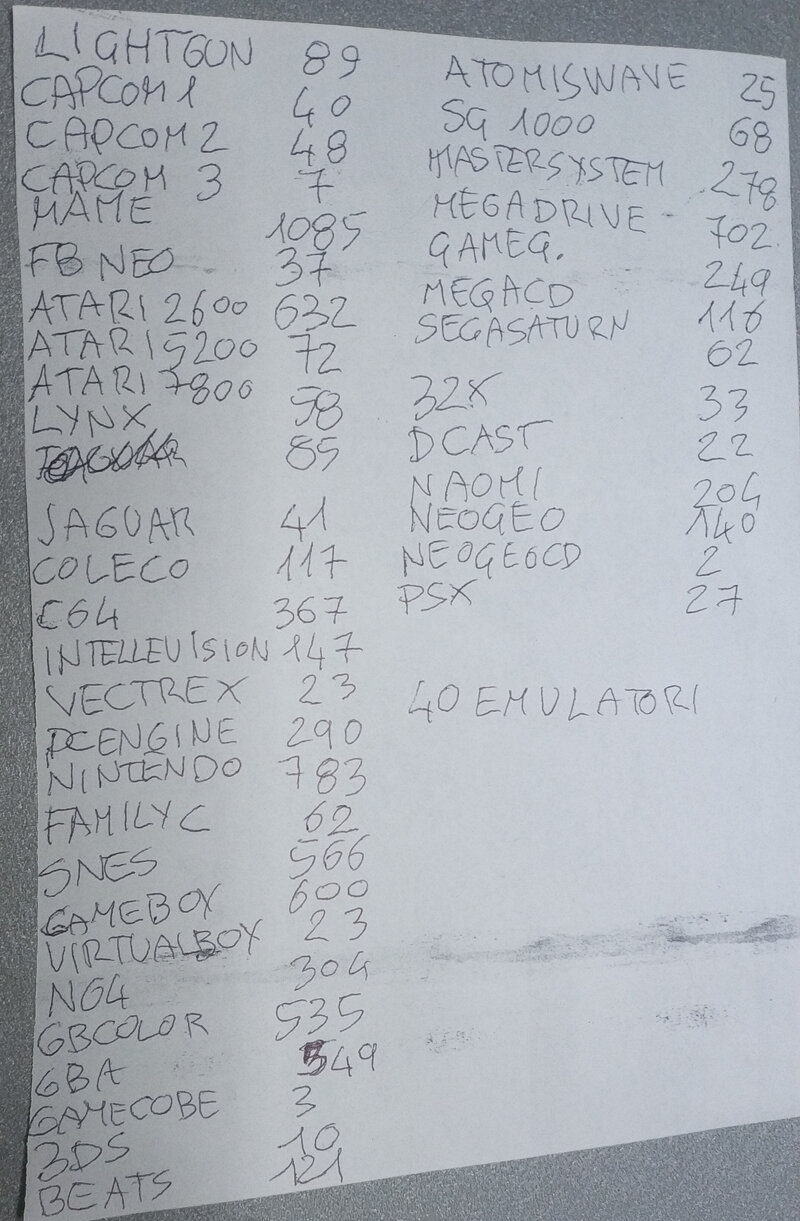 LIGHTGUN 89
CAPCOM 1 40
CAPCOM 2 48
CAPCOM 3 7
MAME 1085
FB NEO 37
ATARI 2600 632
ATARI 5200 72
ATARI 7800 58
LYNX 85
JAGUAR 41
COLECO 117
C64 367
INTELLEVISION 147
VECTREX 23
PCENGINE 290
NINTENDO 783
FAMILY C 62
SNES 566
GAMEBOY 600
VIRTUALBOY 23
N64 304
GBCOLOR 535
GBA 549
GAMECOBE 3
3DS 10
BEATS 121
ATOMISWAVE 25
SG 1000 68
MASTERSYSTEM 278
MEGADRIVE 702
GAMEG. 249
MEGACD 116
SEGASATURN 62
32X 33
DCAST 22
NAOMI 204
NEOGEO 140
NEOGEOCD 2
PSX 27
40 EMULATORI